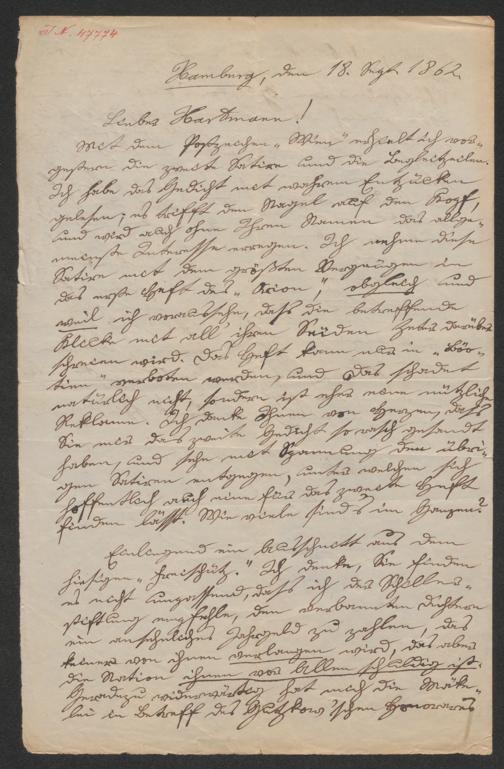 I. N. 47774
Hamburg, den 18. Sept. 1862.
Liebes Hartmann!
Mit dem Postzeichen „Wien" erhielt ich vor-
gestern die zweite Satire und die Begleitzeilen.
Ich habe das Gedicht mit wahrem Entzücken
gelesen; es trifft den Nagel auf den Kopf,
und wird auch ohne Ihren Namen das allge-
meinste Interesse erregen. Ich nehme diese
Satire mit dem größten Vergnügen in
das erste Heft des „Orion", obgleich und
weil ich voraussehe, daß die betreffende
Klicke mit all' ihren Seiden Zeter darüber
schreien wird. Das Heft kann uns in „Böo-
tien" verboten werden, und das schadet
natürlich nicht, sondern ist eher eine nützliche
Reklame. Ich danke Ihnen von Herzen, daß
Sie mir das zweite Gedicht so rasch gesandt
haben, und sehe mit Spannung den übri-
gen Satiren entgegen, unter welchen sich
hoffentlich auch eine für das zweite Heft
finden läßt. Wie viele sind's im Ganzen?
Einliegend ein Ausschnitt aus dem
hiesigen „Freischütz." Ich denke, Sie finden
es nicht unpassend, daß ich der Schiller-
stiftung empfehle, den verbannten Dichtern
ein ansehnliches Jahrgeld zu zahlen, das
keiner von ihnen verlangen wird, das aber
die Nation ihnen vor Allem schuldig ist.
Geradezu widerwärtig hat mich die Mäke-
lei in Betreff des Gutzkow'schen Honorares